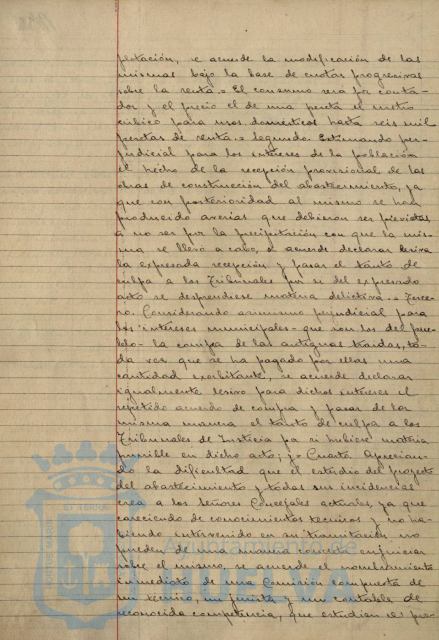 plotación, se acuerde la modificación de las
mismas bajo la base de cuotas progresivas
sobre la renta.= El consumo será por conta-
dor y el precio el de una peseta el metro
cúbico para usos domésticos hasta seis mil
pesetas de renta.= Segundo. Estimando per-
judicial para los intereses de la población
el hecho de la recepción provisional de las
obras de construcción del abastecimiento, ya
que con posterioridad al mismo se han
producido averias que debieron ser previstas
a no ser por la precipitación con que la mis-
ma se llevó a cabo, se acuerde declarar lesiva
la expresada recepción y pasar el tanto de
culpa a los Tribunales por si del expresado
acto se desprendiese materia delictiva.= Terce-
ro. Considerando asimismo perjudicial para
los intereses municipales- que son los del pue-
blo- la compra de las antiguas traidas, to-
da vez que se ha pagado por ellas una
cantidad exorbitante, se acuerde declarar
igualmente lesivo para dichos intereses el
repetido acuerdo de compra y pasar de la
misma manera el tanto de culpa a los
Tribunales de Justicia por si hubiere materia
punible en dicho acto; y= Cuarto. Aprecian-
do la dificultad que el estudio del proyecto
del abastecimiento y todas sus incidencias
crea a los Señores Concejales actuales, ya que
careciendo de conocimientos tecnicos y no ha-
biendo intervenido en su tramitación no
pueden de una manera concreta enjuiciar
sobre el mismo, se acuerde el nombramiento
inmediato de una Comisión compuesta de
un tecnico, un jurista y un contable de
reconocida competencia, que estudien el pro-
Ayuntamiento de